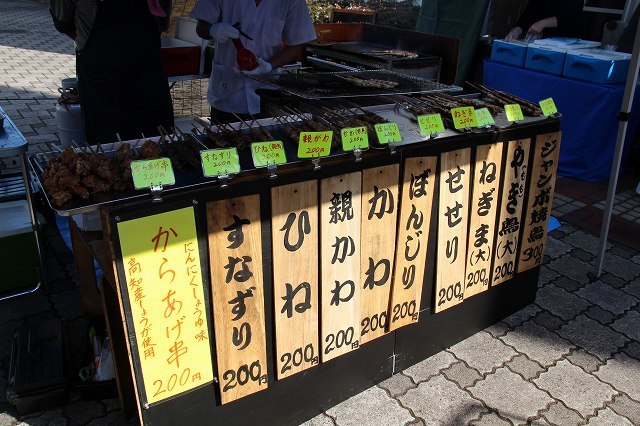 からあげ串
にんにくしょうゆ味
高知産しょうが使用
200円
すなずり
200円
ひね
200円
親かわ
200円
かわ
200円
ぼんじり
200円
せせり
200円
ねぎま(大)
200円
やき鳥(大)
200円
ジャンボ焼鳥
300
からあげ串
200円
すなずり
200円
ひね
200円
親かわ
200円
かわ
200円
ぼんじり
200円
せせり
200円
ねぎま
200円